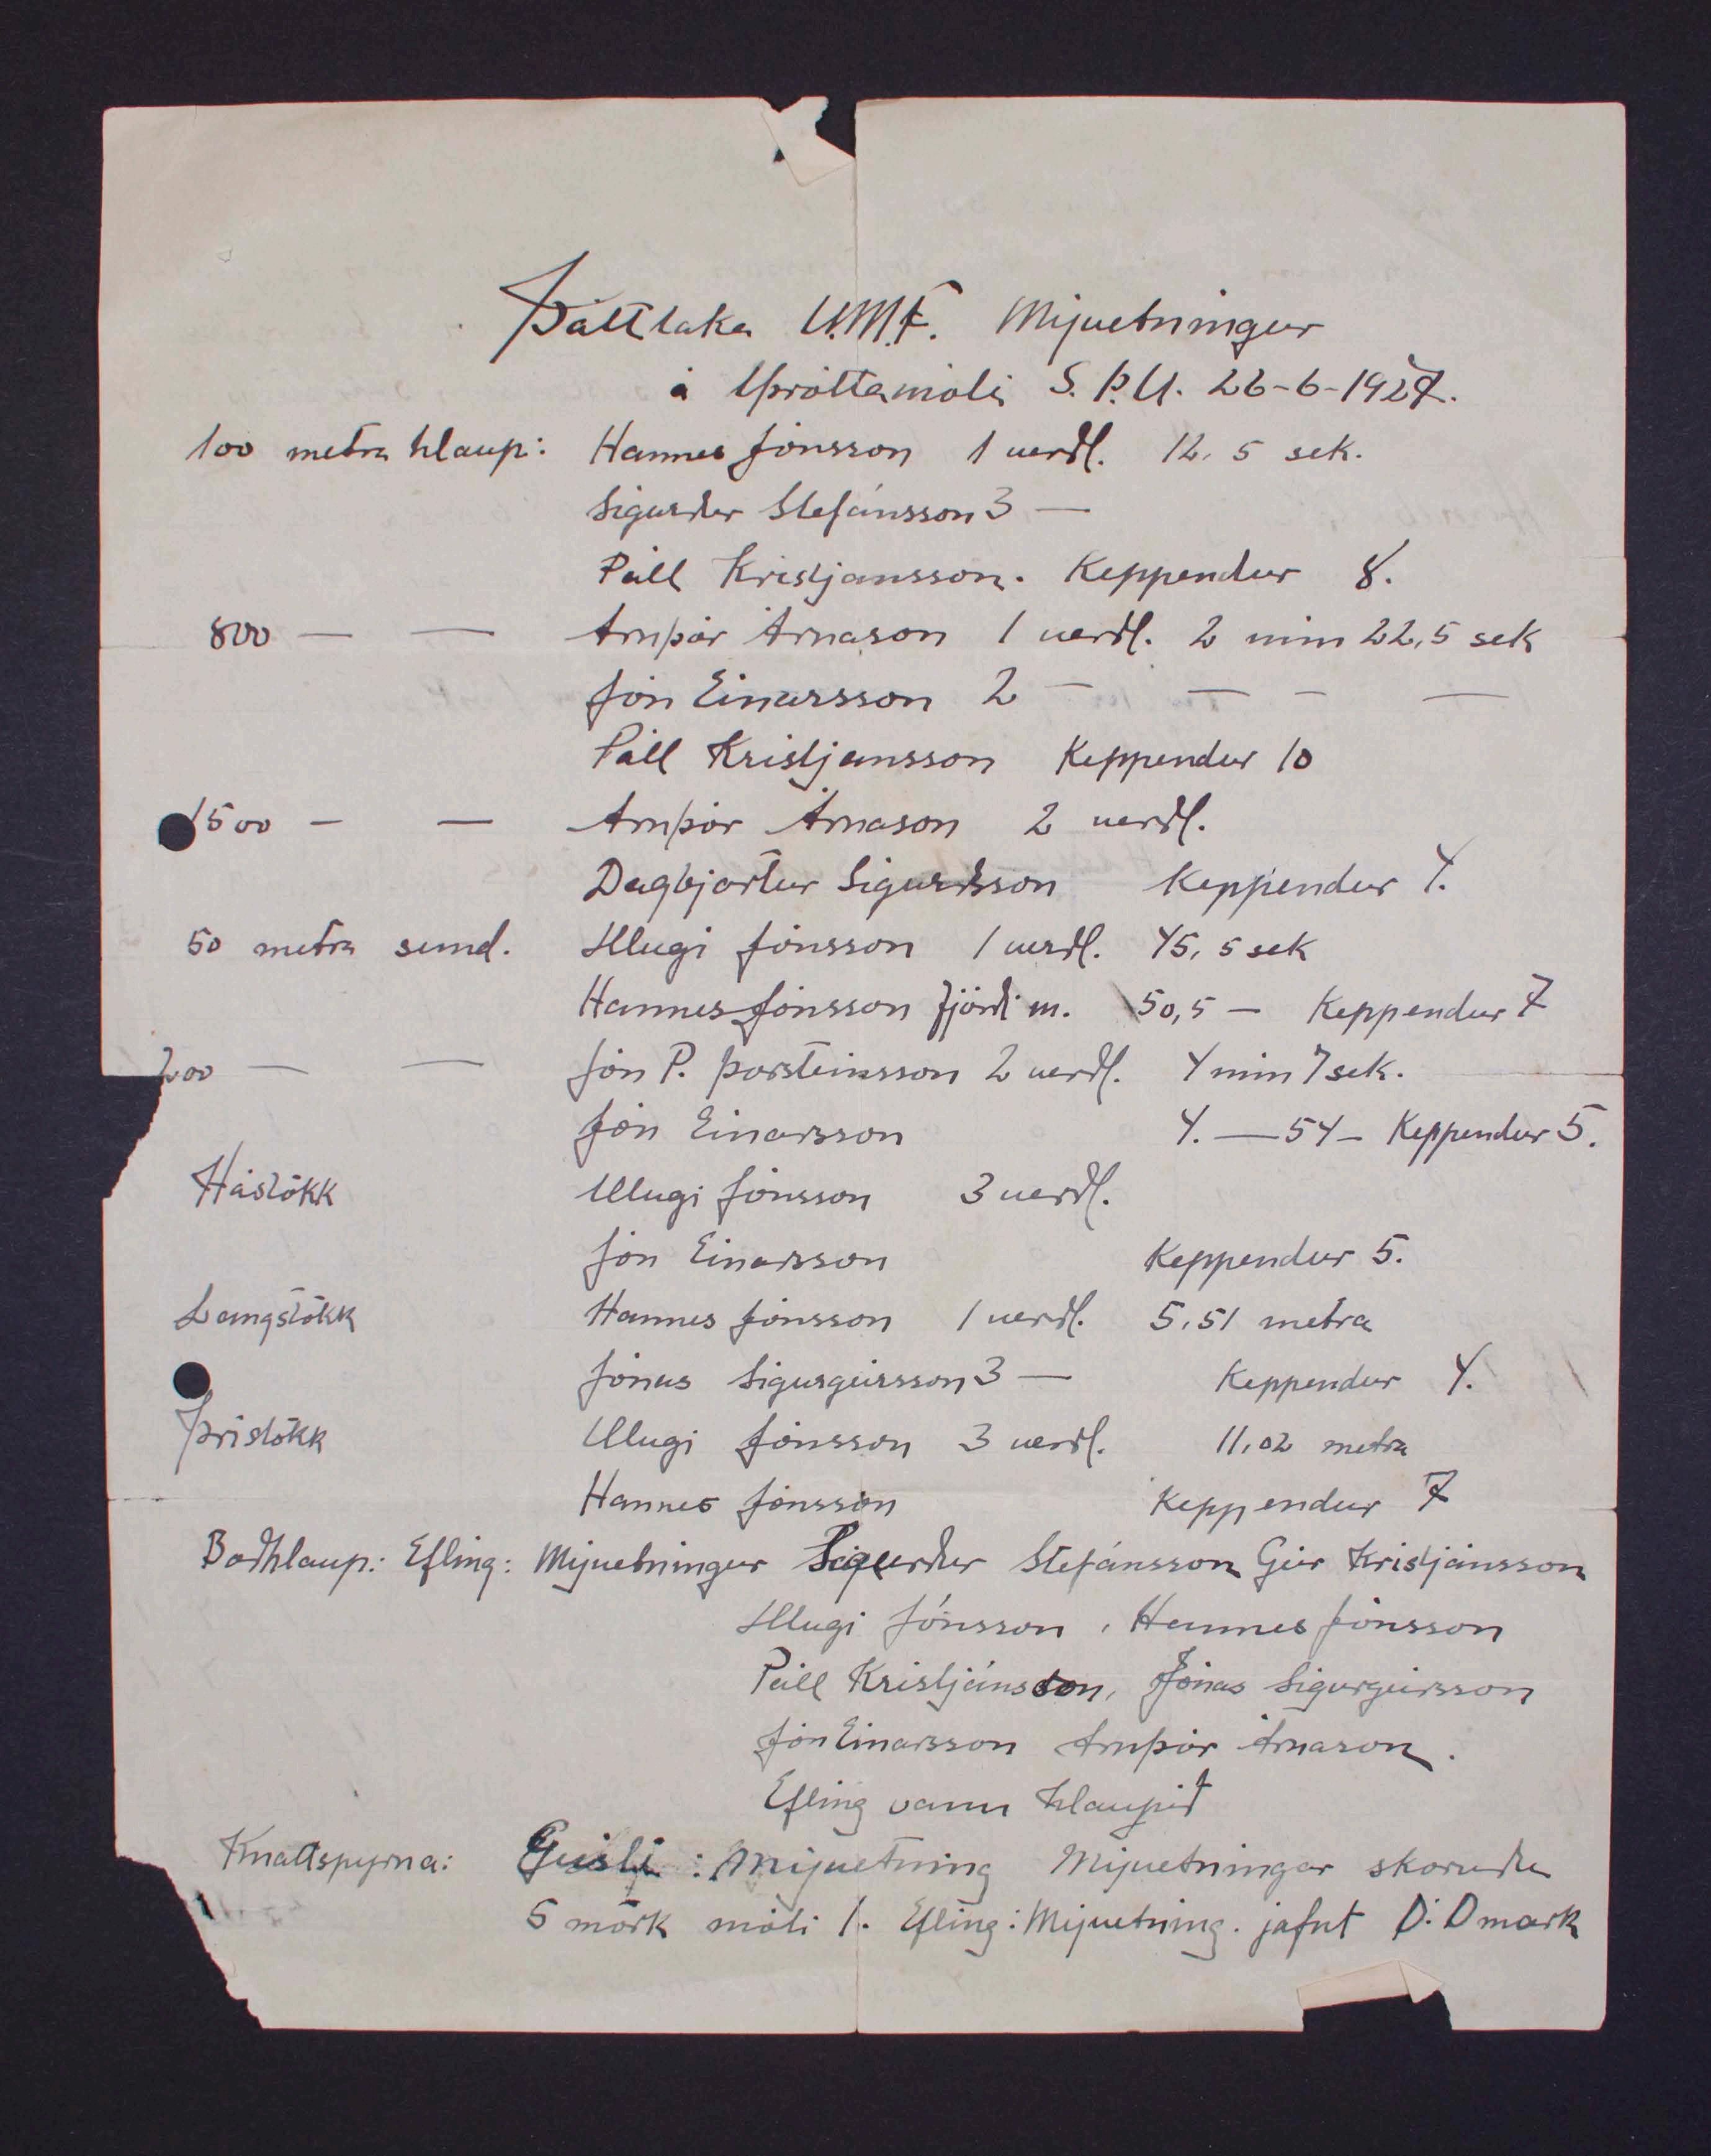 Þátttaka U.M.F. Mývetningur
á Íþróttamóti S.Þ.U. 26-6-1927.
100 metra hlaup: Hannes Jónsson 1 verðl. 12,5 sek.
Sigurður Stefánsson 3 —
Páll Kristjánsson. Keppendur 8.
800 — — Arnþór Árnason 1 verðl. 2 mín 22,5 sek
Jón Einarsson 2 — — — —
Páll Kristjánsson Keppendur 10
1500 — — Arnþór Árnason 2 verðl.
Dagbjartur Sigurðsson Keppendur 4.
50 metra sund. Illugi Jónsson 1 verðl. 45,5 sek
Hannes Jónsson fjórði m. 50,5 — Keppendur 7
200 — — Jón P. Þorsteinsson 2 verðl. 4 mín 7 sek.
Jón Einarsson 4. — 54 — Keppendur 5.
Hástökk Illugi Jónsson 3 verðl.
Jón Einarsson Keppendur 5.
Langstökk Hannes Jónsson 1 verðl. 5,51 metra
Jónas Sigurgeirsson 3 — Keppendur 4.
Þrístökk Illugi Jónsson 3 verðl. 11,02 metra
Hannes Jónsson Keppendur 7
Boðhlaup: Efling: Mývetningur Sigurður Stefánsson Geir Kristjánsson
Illugi Jónsson, Hannes Jónsson
Páll Kristjánsson, Jónas Sigurgeirsson
Jón Einarsson Arnþór Árnason.
Efling vann hlaupið
Knattspyrna: Geisli: Mývetning Mývetningar skoruðu
5 mörk móti 1. Efling: Mývetning. jafnt 0:0 mark